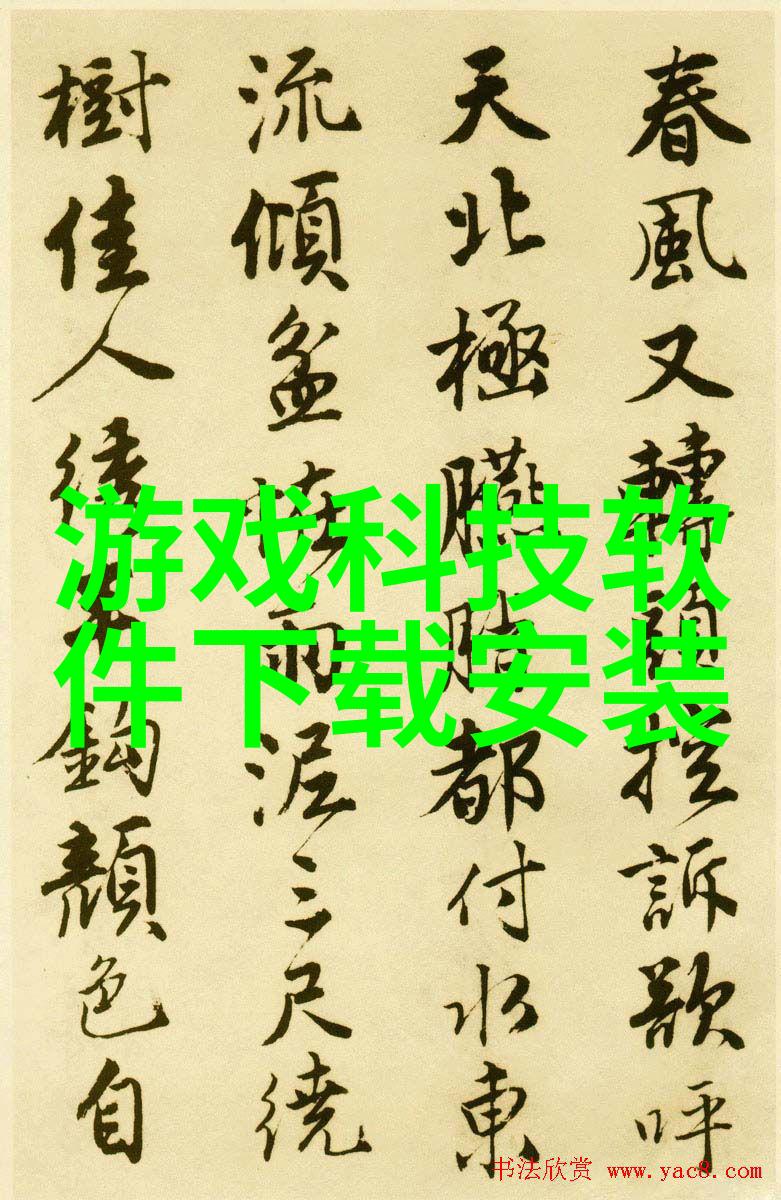 春風又轉控訴歌呼
天北極腑都付水東
流傾盆怪雨泥三尺繞
樹佳人鉤顏色自
游戏科技软
件下载安装
书法欣赏 www.yac8.com